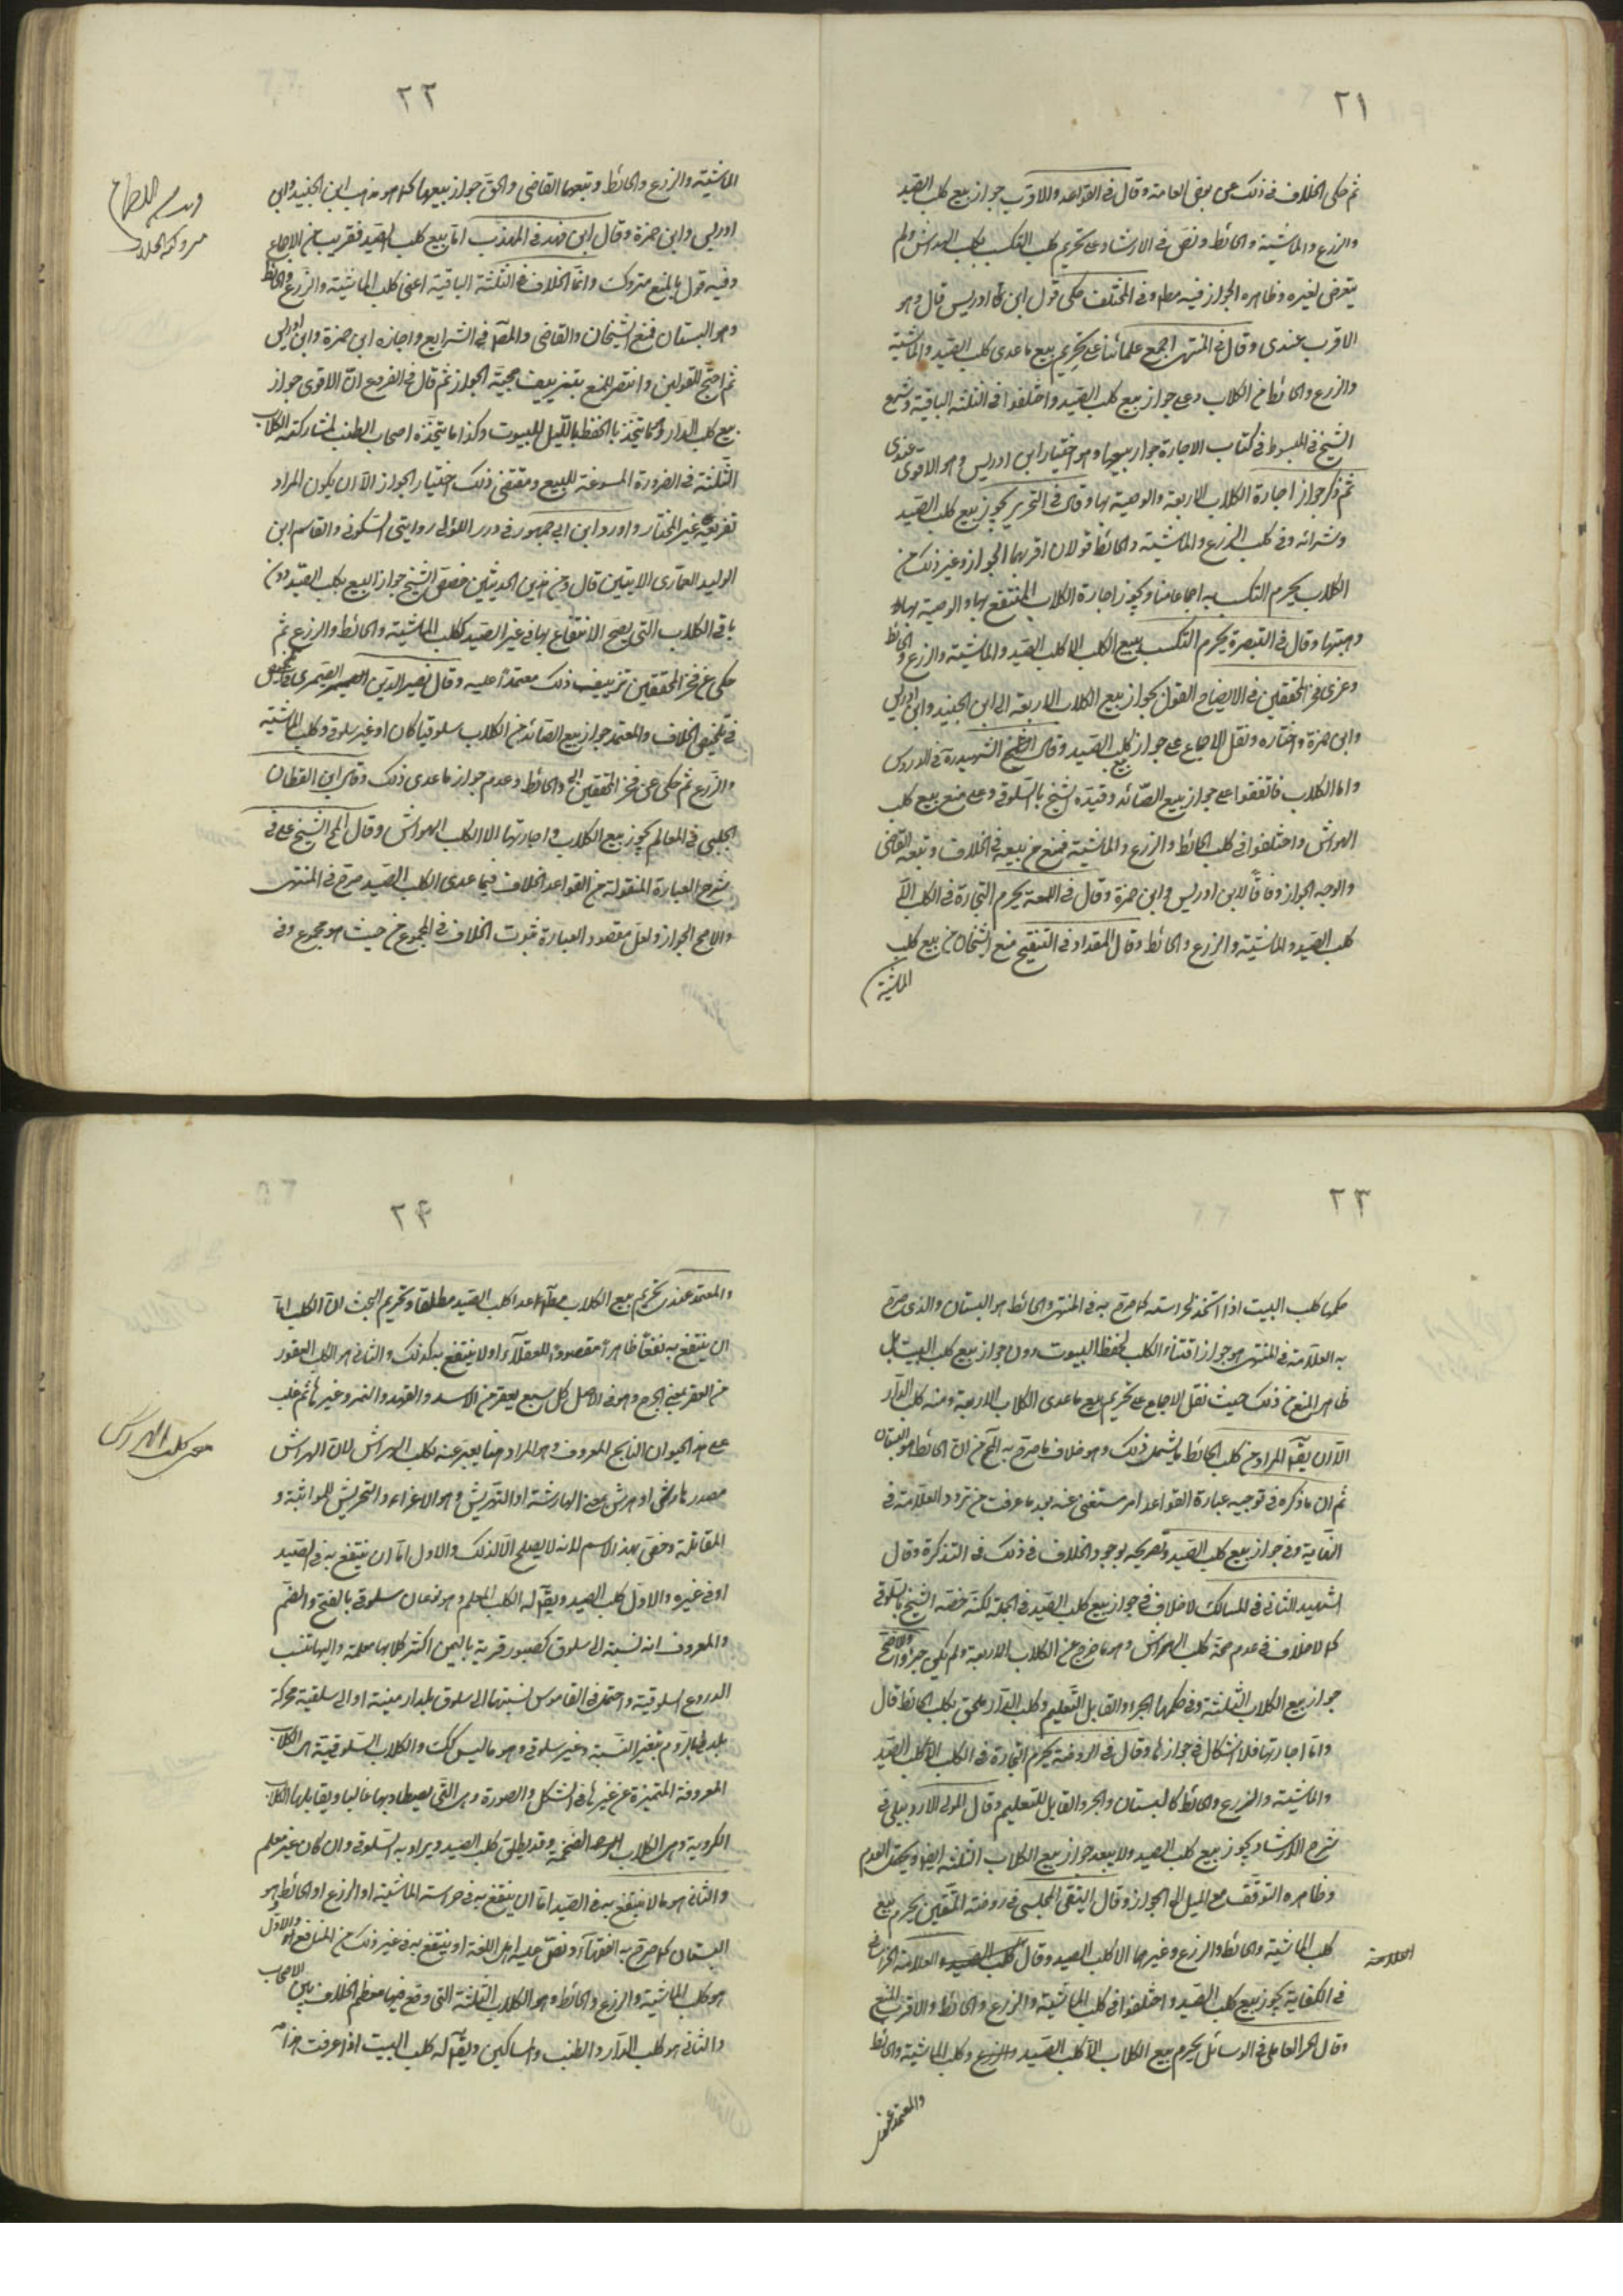 ٢١
ثم حكى الخلاف فى ذلك عن بعض العامة وقال فى القواعد والاقرب جواز بيع كلب الصيد
والزرع والماشية والحائط ونص فى الارشاد على تحريم كلب الهراش ولم
يتعرض لغيره وظاهره الجواز فيه وفى المختلف حكى قول ابن ادريس قال وهو
الاقرب عندى وقال فى المنتهى اجمع علمائنا على تحريم بيع ماعدى كلب الصيد والماشية
والزرع والحائط من الكلاب وعلى جواز بيع كلب الصيد واختلفوا فى الثلثة الباقية
الشيخ فى المبسوط فى كتاب الاجارة جواز بيعها وهو اختيار ابن ادريس وهو الاقوى عندى
ثم ذكر جواز اجارة الكلاب الاربعة والوصية بها وقال فى التحرير يجوز بيع كلب الصيد
وشرائه وفى كلب الزرع والماشية والحائط قولان اقربهما الجواز وغير ذلك من
الكلاب يحرم التكسب به اجماعا منا ويجوز اجارة الكلاب المنتفع بها والوصية بها
وهبتها وقال فى التبصرة يحرم التكسب ببيع الكلب الا كلب الصيد والماشية والزرع والحائط
وعزى فخر المحققين فى الايضاح القول بجواز بيع الكلاب الاربعة الى ابن الجنيد وابن ادريس
وابن حمزة واختاره ونقل الاجماع على جواز بيع كلب الصيد وقال الشيخ الشهيد ره فى الدروس
واما الكلاب فاتفقوا على جواز بيع الصائد وقيده الشيخ بالسلوقى وعلى منع بيع كلب
الهراش واختلفوا فى كلب الحائط والزرع والماشية فمنع من بيعه فى الخلاف وتبعه القاضى
والوجه الجواز وفاقا لابن ادريس وابن حمزة وقال فى اللمعة يحرم التجارة فى الكلب الا
كلب الصيد والماشية والزرع والحائط وقال المقداد فى التنقيح منع الشيخان من بيع كلب
الماشية
٢٢
الماشية والزرع والحائط وتبعهما القاضى والحق جواز بيعها كما هو مذهب ابن الجنيد وابن
ادريس وابن حمزة وقال ابن فهد فى المهذب اما بيع كلب الصيد فقريب من الاجماع
وفيه قول بالمنع متروك وانما الخلاف فى الثلثة الباقية اعنى كلب الماشية والزرع والحائط
وهو البستان فمنع الشيخان والقاضى والمص فى الشرايع واجازه ابن حمزة وابن ادريس
ثم احتج للقولين وانتصر للمنع بتزييف حجية الجواز ثم قال فى الفروع ان الاقوى جواز
بيع كلب الدار وما يتخذ بالحفظ بالليل للبيوت وكذا ما يتخذه اصحاب الطنب لمشاركته الكلاب
الثلثة فى الضرورة المسوغة للبيع ومقتضى ذلك اختيار الجواز الا ان يكون المراد
تفريعه غير المختار واورد ابن ابى جمهور فى درر اللؤلى روايتى السكونى والقاسم ابن
الوليد العمارى الاتيتين قال ومن هذين الحديثين خصص الشيخ جواز البيع بكلب الصيد دون
باقى الكلاب التى يصح الانتفاع بها فى غير الصيد ككلب الماشية والحائط والزرع ثم
حكى عن فخر المحققين تزييف ذلك معتمدا عليه وقال نصير الدين
فى تلخيص الخلاف والمعتمد جواز بيع الصائد من الكلاب سلوقيا كان او غير سلوقى وكلب الماشية
والزرع ثم حكى عن فخر المحققين والحائط وعدم جواز ماعدى ذلك وقال ابن القطان
الحلبى فى المعالم يجوز بيع الكلاب واجارتها الا الكلب الهراش وقال الشيخ على فى
شرح العبارة المنقولة من القواعد الخلاف فيما عدى الكلب الصيد صرح فى المنتهى
والاصح الجواز ولعل مقصود العبارة ثبوت الخلاف فى المجموع من حيث هو مجموع وفى
٢٣
حكمها كلب البيت اذا اتخذ لحراسته كما صرح به فى المنتهى والحائط هو البستان والذى صرح
به العلامة فى المنتهى هو جواز اقتناء الكلب لحفظ البيوت دون جواز بيع كلب البيت بل
ظاهره المنع من ذلك حيث نقل الاجماع على تحريم بيع ماعدى الكلاب الاربعة ومنه كلب الدار
الا ان يقال المراد من كلب الحائط ما يشمل ذلك وهو خلاف ما صرح به من ان الحائط هو البستان
ثم ان ما ذكره فى توجيه عبارة القواعد امر مستغنى عنه بعد ما عرفت من تردد العلامة فى
النهاية وفى جواز بيع كلب الصيد وتصريحه بوجود الخلاف فى ذلك فى التذكرة وقال
الشهيد الثانى فى المسالك لا خلاف فى جواز بيع كلب الصيد فى الجملة لكن خصه الشيخ بالسلوقى
كما لا خلاف فى عدم صحة كلب الهراش وهو ما خرج عن الكلاب الاربعة ولم يكن جروا والاصح
جواز بيع الكلاب الثلثة وفى حكمها الجرو القابل للتعليم وكلب الدار ملحق بكلب الحائط قال
واما اجارتها فلا اشكال فى جوازها وقال فى الروضة يحرم التجارة فى الكلب الا كلب الصيد
والماشية والزرع والحائط كالبستان والجرو القابل للتعليم وقال المولى الاردبيلى فى
شرح الارشاد يجوز بيع كلب الصيد ولا يبعد جواز بيع الكلاب الثلثة ايضا ويحتمل العدم
وظاهره التوقف مع الميل الى الجواز وقال التقى المجلسى فى روضة المتقين يحرم بيع
كلب الماشية والحائط والزرع وغيرها الا كلب الصيد وقال العلامة الخراسانى
فى الكفاية يجوز بيع كلب الصيد واختلفوا فى كلب الماشية والزرع والحائط والاقرب المنع
وقال الحر العاملى فى الوسائل يحرم بيع الكلاب الا كلب الصيد والزرع وكلب الماشية والحائط
والمعتمد عند
٢٤
والمعتمد عندى تحريم بيع الكلاب ماعدا كلب الصيد مطلقا وتحريم البحث ان الكلب اما
ان ينتفع به نفعا ظاهرا مقصودا للعقلاء او لا ينتفع به كذلك والثانى هو الكلب العقور
من العقر بمعنى الجرح وهو فى الاصل كل سبع يعقر من الاسد والفهد والنمر وغيرها ثم غلب
على هذا الحيوان النابح المعروف وهو المراد هنا يعبر عنه بكلب الهراش لان الهراش
مصدر هارش او هرش بمعنى المهارشة او التهريش وهو الاغراء والتحريش للمواثبة و
المقاتلة وخص بهذا الاسم لانه لا يصلح الا لذلك والاول اما ان ينتفع به فى الصيد
او فى غيره والاول كلب الصيد ويقال له الكلب المعلم وهو نوعان سلوقى بالفتح والضم
والمعروف انه نسبة الى سلوق كصبور قرية باليمن اكثر كلابها معلمة واليها تنسب
الدروع السلوقية واحتمل فى القاموس نسبتها الى سلوق بلد ارمينية او الى سلقية محركة
بلد بالروم بتغير النسبة وغير سلوقى وهو ما ليس كك والكلاب السلوقية هى الكلاب
المعروفة المتميزة عن غيرها فى الشكل والصورة وهى التى يصطاد بها غالبا ويقابلها الكلاب
الكردية وهى الكلاب الضخمة وقد يطلق كلب الصيد ويراد به السلوقى وان كان غير معلم
والثانى هو ما لا ينتفع به فى الصيد اما ان ينتفع به فى حراسة الماشية او الزرع او الحائط وهو
البستان كما صرح به الفقهاء ونص عليه اهل اللغة او ينتفع به فى غير ذلك من المنافع والاول
هو كلب الماشية والزرع والحائط وهو الكلاب الثلثة التى وقع فيها معظم الخلاف بين الاصحاب
والثانى هو كلب الدار والطنب والساكين ويقال له كلب البيت اذا عرفت هذا